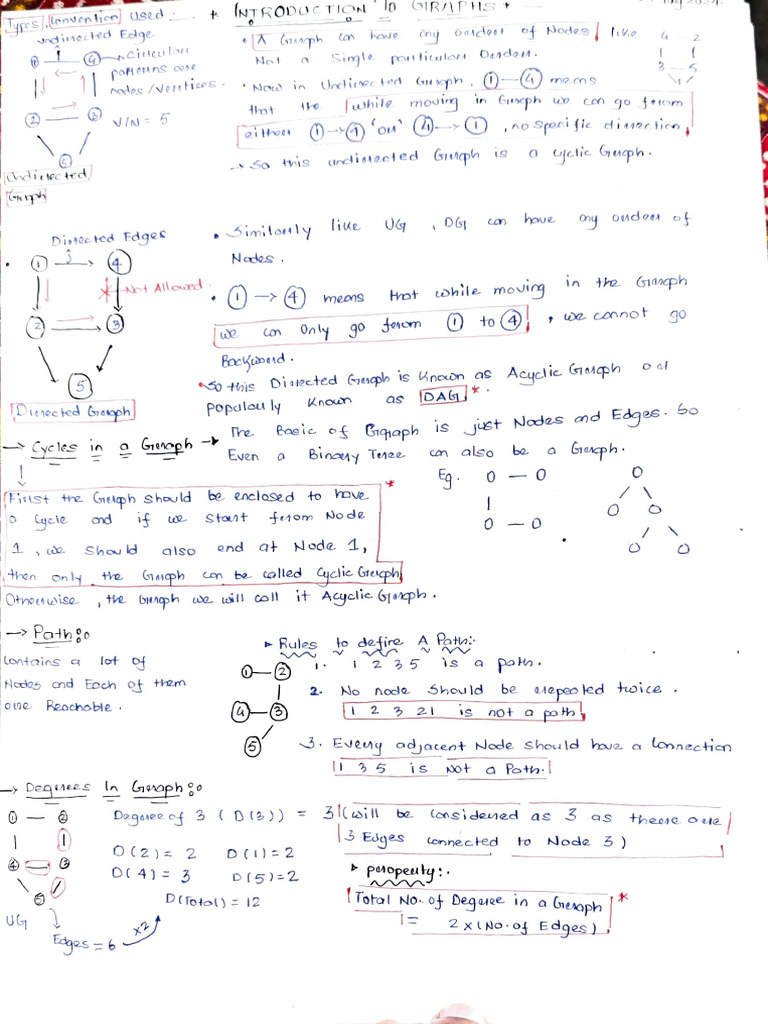 * INTRODUCTION To GRAPHS *
Types, Convention Used :
Undirected Edge
1 4 → Circular
patterns are
nodes/vertices.
2 3 V/N = 5
5
Undirected
Graph
• A Graph can have any order of Nodes, like
Not a Single particular Order.
4 — 2
3 — 5
1
• Now in Undirected Graph, 1 — 4 means
that the while moving in Graph we can go from
either 1 → 4 'or' 4 → 1, no specific direction,
→ So this undirected Graph is a Cyclic Graph.
Directed Edges
• 1 → 4
Not Allowed.
2 → 3
5
Directed Graph
• Similarly like UG, DG can have any order of
Nodes.
• 1 → 4 means that while moving in the Graph
we can only go from 1 to 4, we cannot go
Backward.
• So this Directed Graph is Known as Acyclic Graph or
popularly Known as DAG *
→ Cycles in a Graph →
The Basic of Graph is just Nodes and Edges. So
Even a Binary Tree can also be a Graph.
Eg. O — O
O — O
First the Graph should be enclosed to have *
a Cycle and if we start from Node
1, we should also end at Node 1,
then only the Graph can be called Cyclic Graph
Otherwise, the Graph we will call it Acyclic Graph.
→ Path:
Contains a lot of
Nodes and Each of them
are Reachable.
1 — 2
4 — 3
5
▸ Rules to define A Path:
1. 1 2 3 5 is a path.
2. No node should be repeated twice.
1 2 3 2 1 is not a path
3. Every adjacent Node should have a Connection
1 3 5 is Not a Path.
→ Degrees In Graph:
1 — 2
4 — 3
5
UG
Edges = 6 x2
Degree of 3 (D(3)) = 3 (will be considered as 3 as there are
3 Edges connected to Node 3)
D(2) = 2 D(1) = 2
D(4) = 3 D(5) = 2
D(Total) = 12
▸ property:
Total No. of Degree in a Graph *
= 2 x (No. of Edges)